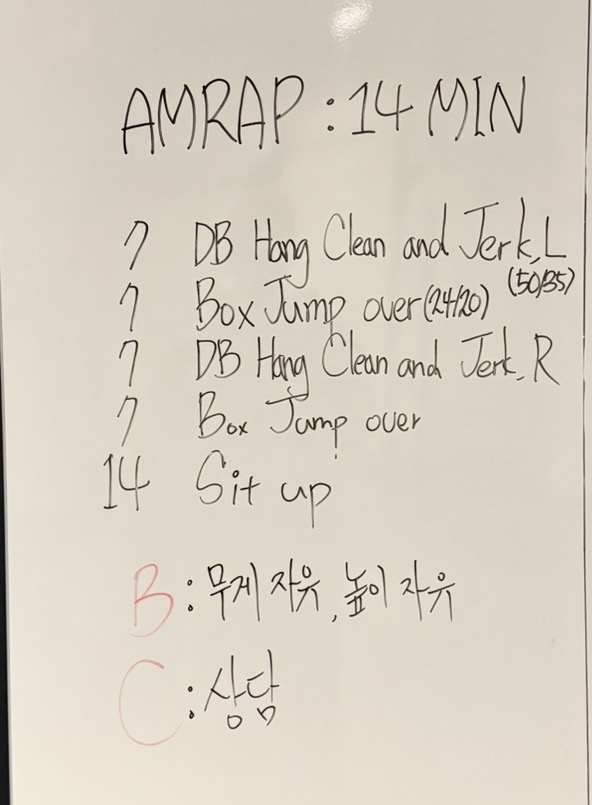 AMRAP : 14 MIN
7 DB Hang Clean and Jerk, L
(50/35)
7 Box Jump over (24/20)
7 DB Hang Clean and Jerk, R
7 Box Jump over
14 Sit up
B : 무게 자유, 높이 자유
C : 상담